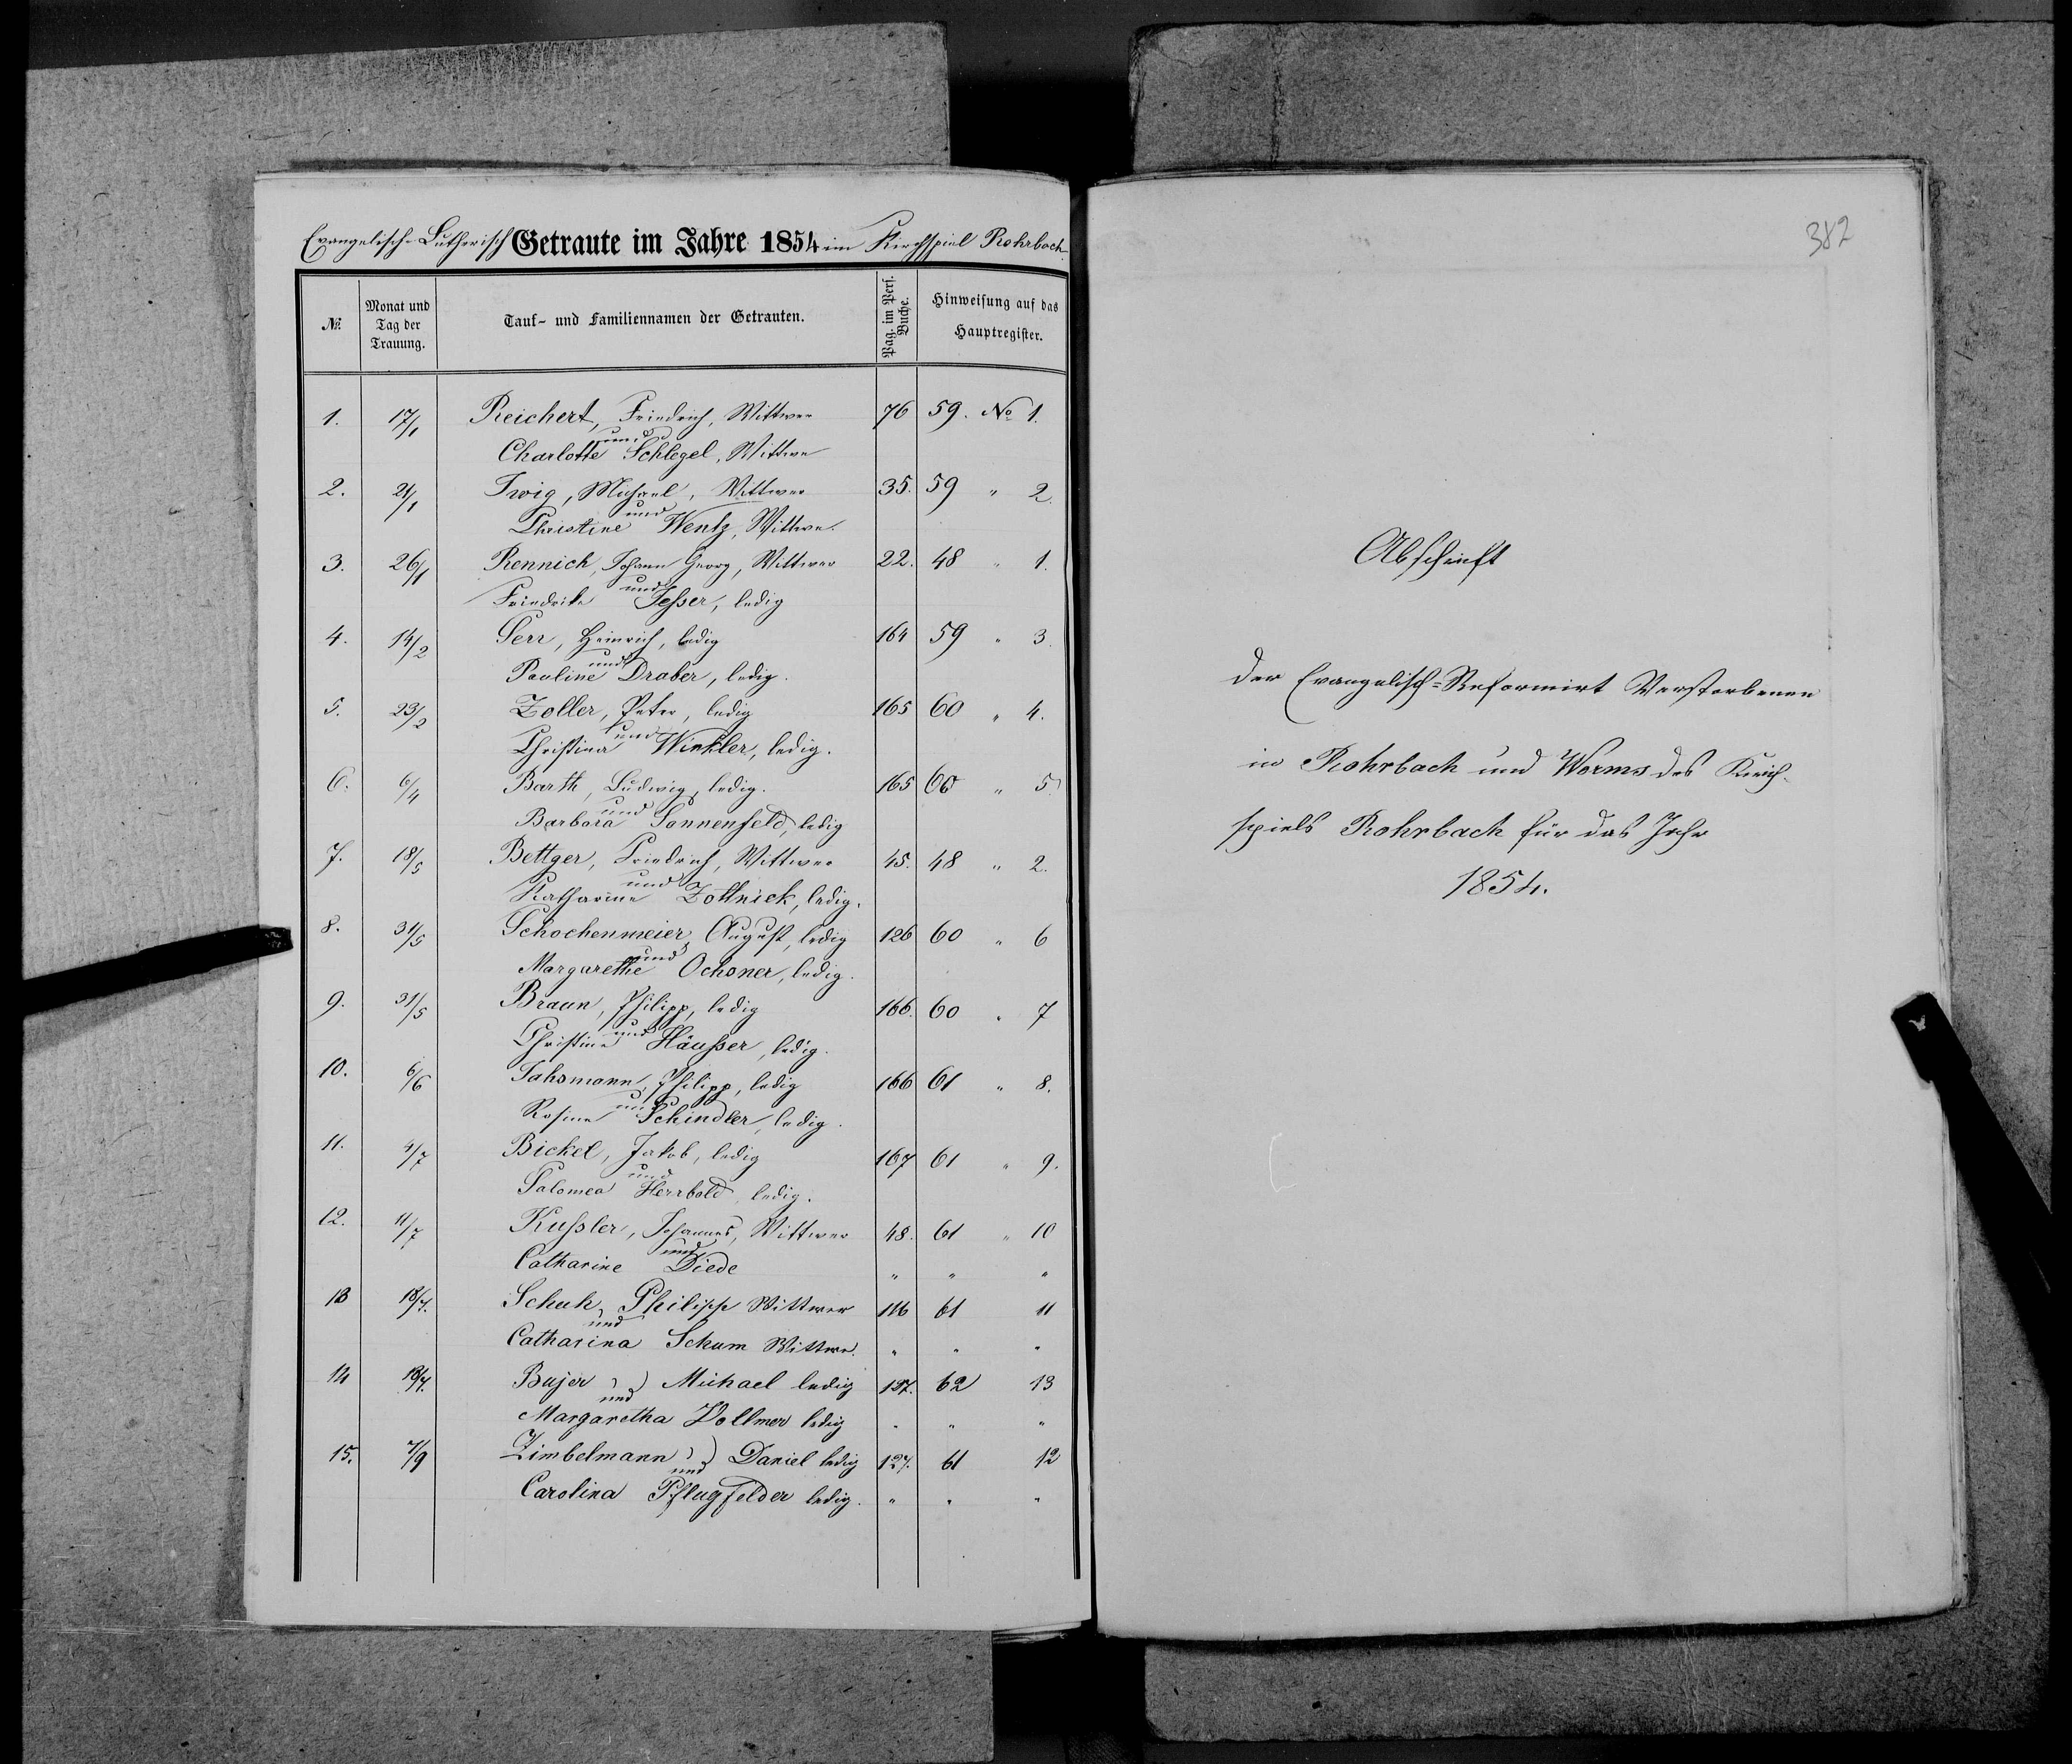 Evangelisch-Lutherisch Getraute im Jahre 1854 im Kirchspiel Rohrbach
№ Monat und Tag der Trauung. Tauf- und Familiennamen der Getrauten. Pag. im Pers. Buche. Hinweisung auf das Hauptregister.
1. 17/1 Reichert, Friedrich, Wittwer 76 59. No 1.
und
Charlotte Schlegel, Wittwe
2. 21/1 Irvig, Michael, Wittwer 35. 59 " 2.
und
Christine Wentz, Wittwe.
3. 26/1 Rennich, Johann Georg, Wittwer 22. 48 " 1.
und
Friedrike Jesser, ledig
4. 14/2 Serr, Heinrich, ledig 164 59 " 3.
und
Pauline Draber, ledig.
5. 23/2 Zoller, Peter, ledig 165 60 " 4.
und
Christina Winkler, ledig.
6. 6/4 Barth, Ludwig, ledig. 165 60 " 5.
und
Barbara Sonnenfeld, ledig
7. 18/5 Bettger, Friedrich, Wittwer 45. 48 " 2.
und
Katharine Zottnick, ledig.
8. 31/5 Schochenmeier, August, ledig 126 60 " 6
und
Margarethe Ochsner, ledig.
9. 31/5 Braun, Philipp, ledig 166. 60 " 7
und
Christine Häußer, ledig.
10. 6/6 Jahsmann, Philipp, ledig 166 61 " 8.
und
Rosine Schindler, ledig.
11. 4/7 Bickel, Jakob, ledig 167 61 " 9.
und
Salomea Herrbold, ledig.
12. 11/7 Kußler, Johannes, Wittwer 48. 61 " 10
und
Catharine Diede " " "
13 18/7. Schuh, Philipp Wittwer 116 61 11
und
Catharina Schum Wittwe. " " "
14 18/7. Bujer, Michael ledig 137. 62 13
und
Margaretha Vollmer ledig " " "
15. 7/9 Zimbelmann, Daniel ledig 127. 61 12
und
Carolina Pflugfelder ledig. " " "
382
Abschrift
der Evangelisch=Reformirt Verstorbenen
in Rohrbach und Worms des Kirch-
spiels Rohrbach für das Jahr
1854.